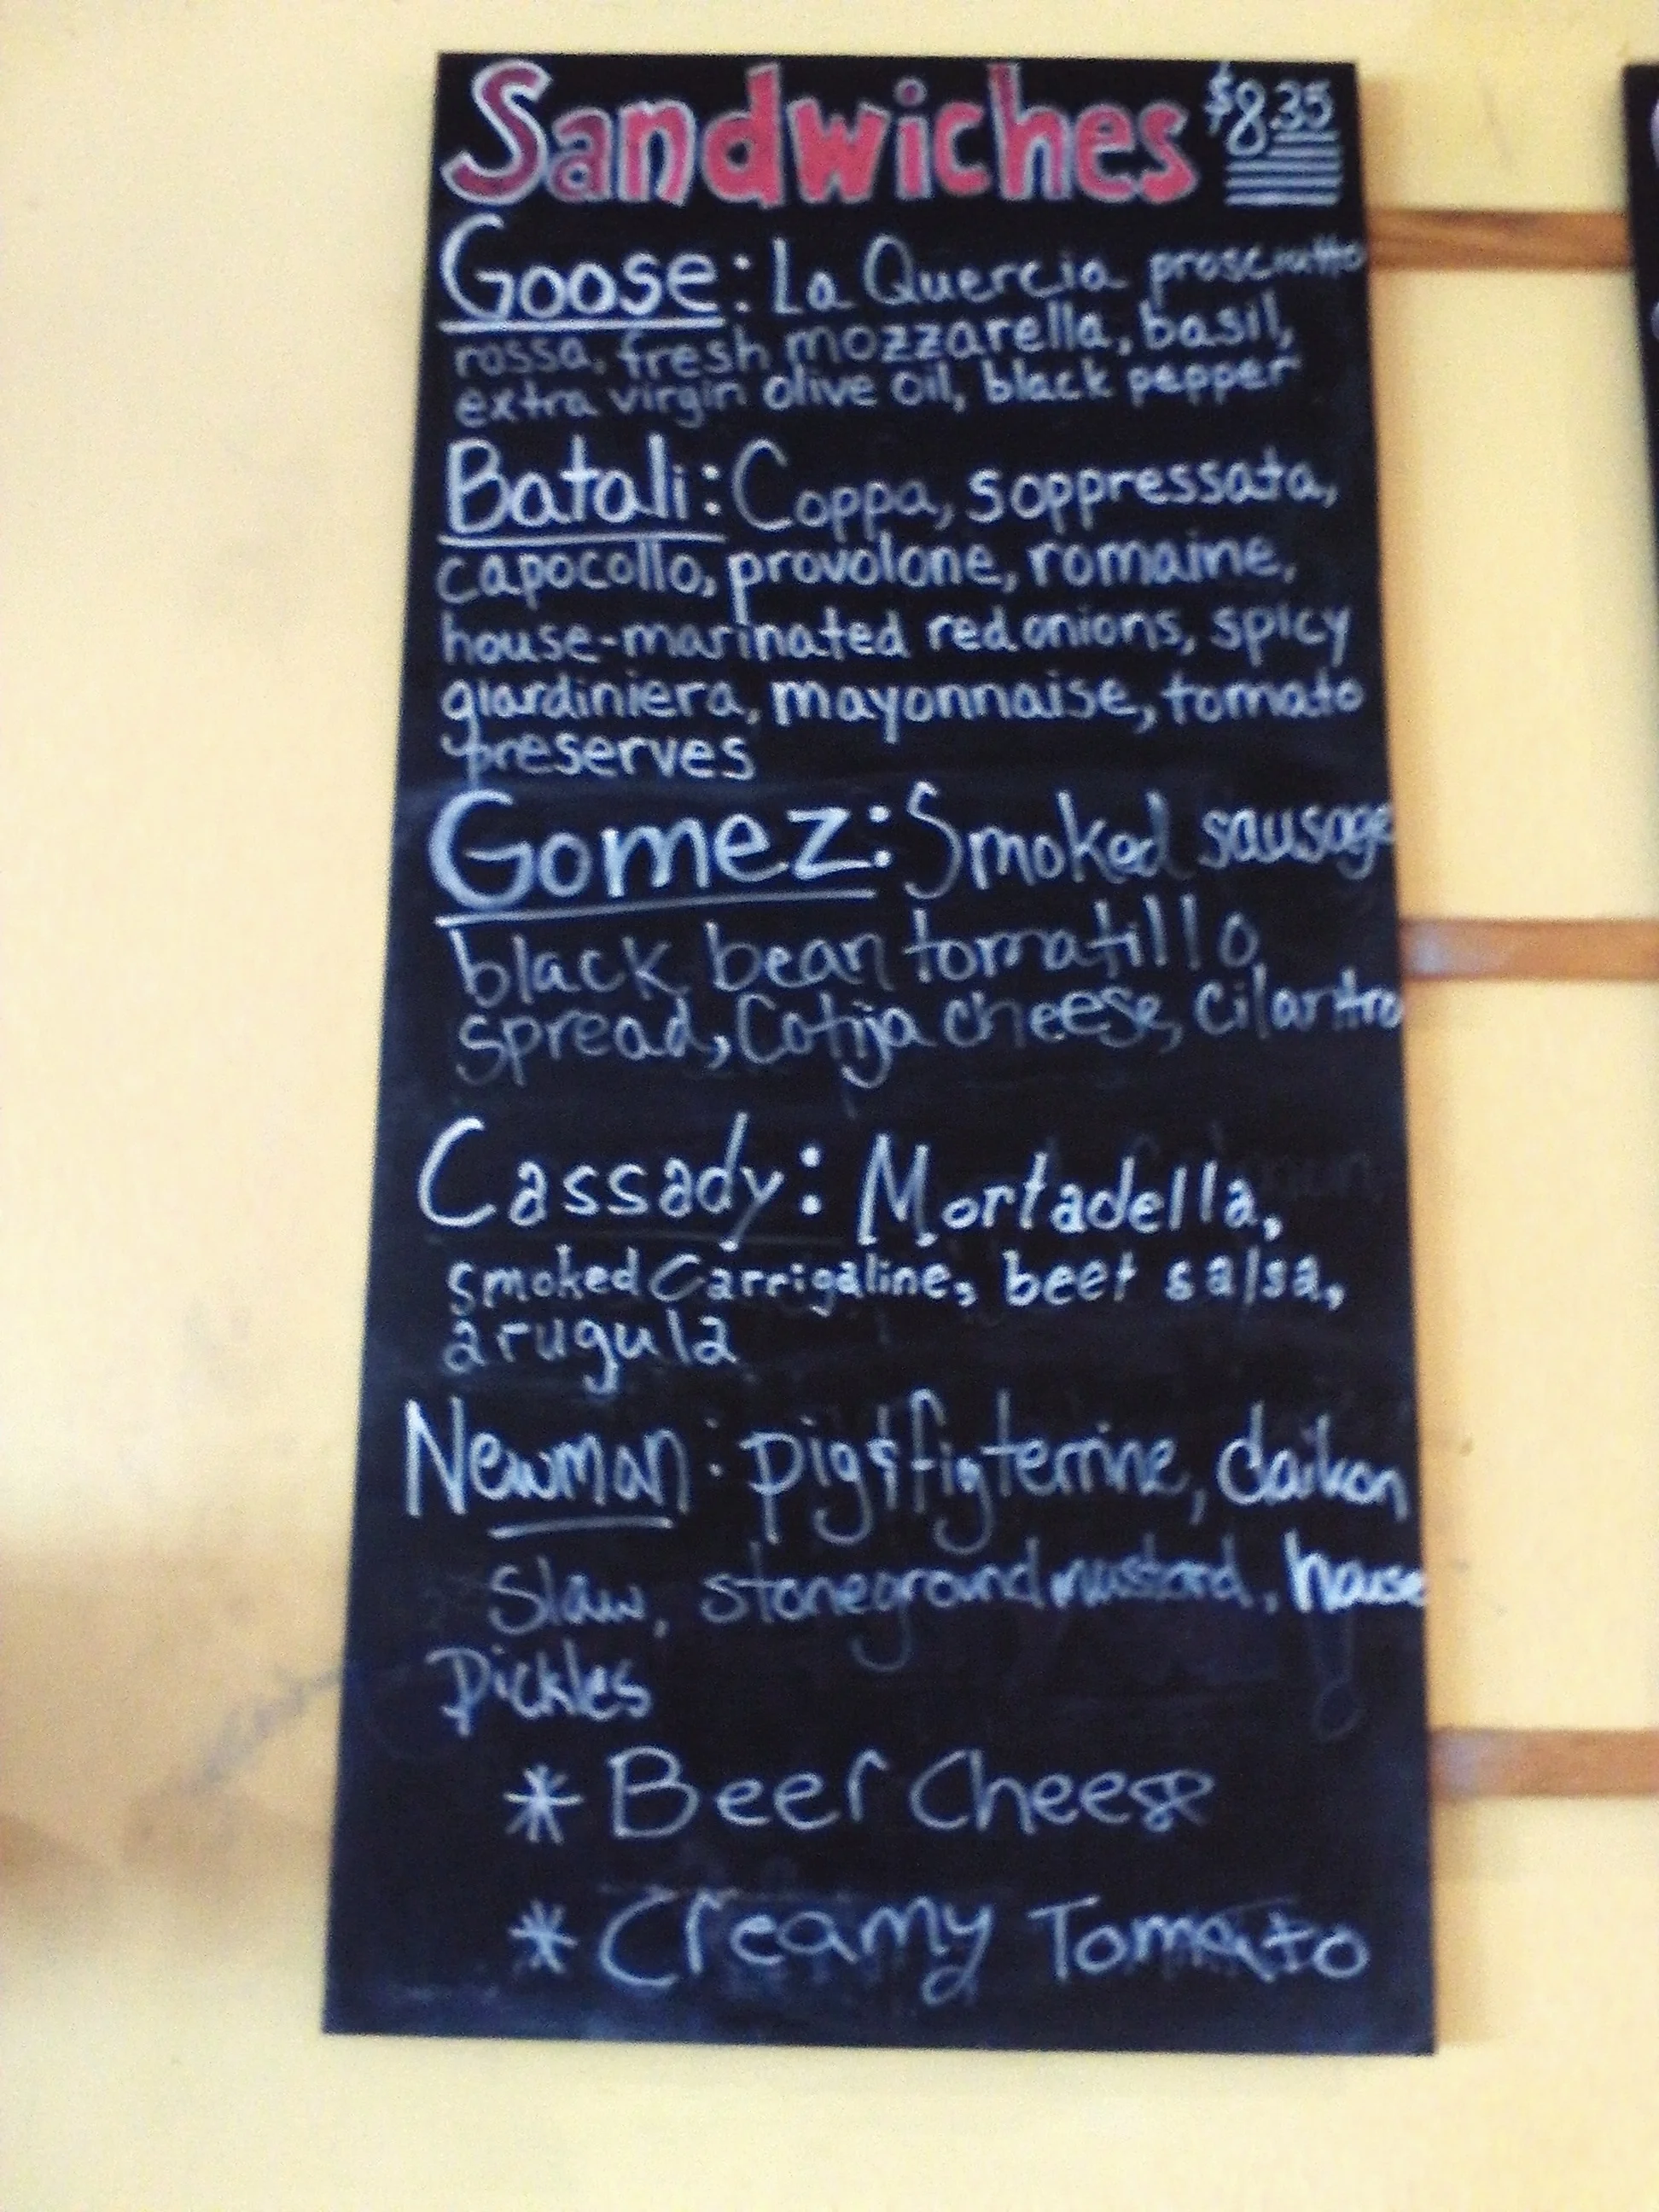 Sandwiches $8.35
Goose: La Quercia prosciutto
rossa, fresh mozzarella, basil,
extra virgin olive oil, black pepper
Batali: Coppa, soppressata,
capocollo, provolone, romaine,
house-marinated red onions, spicy
giardiniera, mayonnaise, tomato
preserves
Gomez: Smoked sausage
black bean tomatillo
spread, Cotija cheese, cilantro
Cassady: Mortadella,
smoked Carrigaline, beet salsa,
arugula
Newman: pig & fig terrine, daikon
slaw, stoneground mustard, house
Pickles
* Beer Cheese
* Creamy Tomato